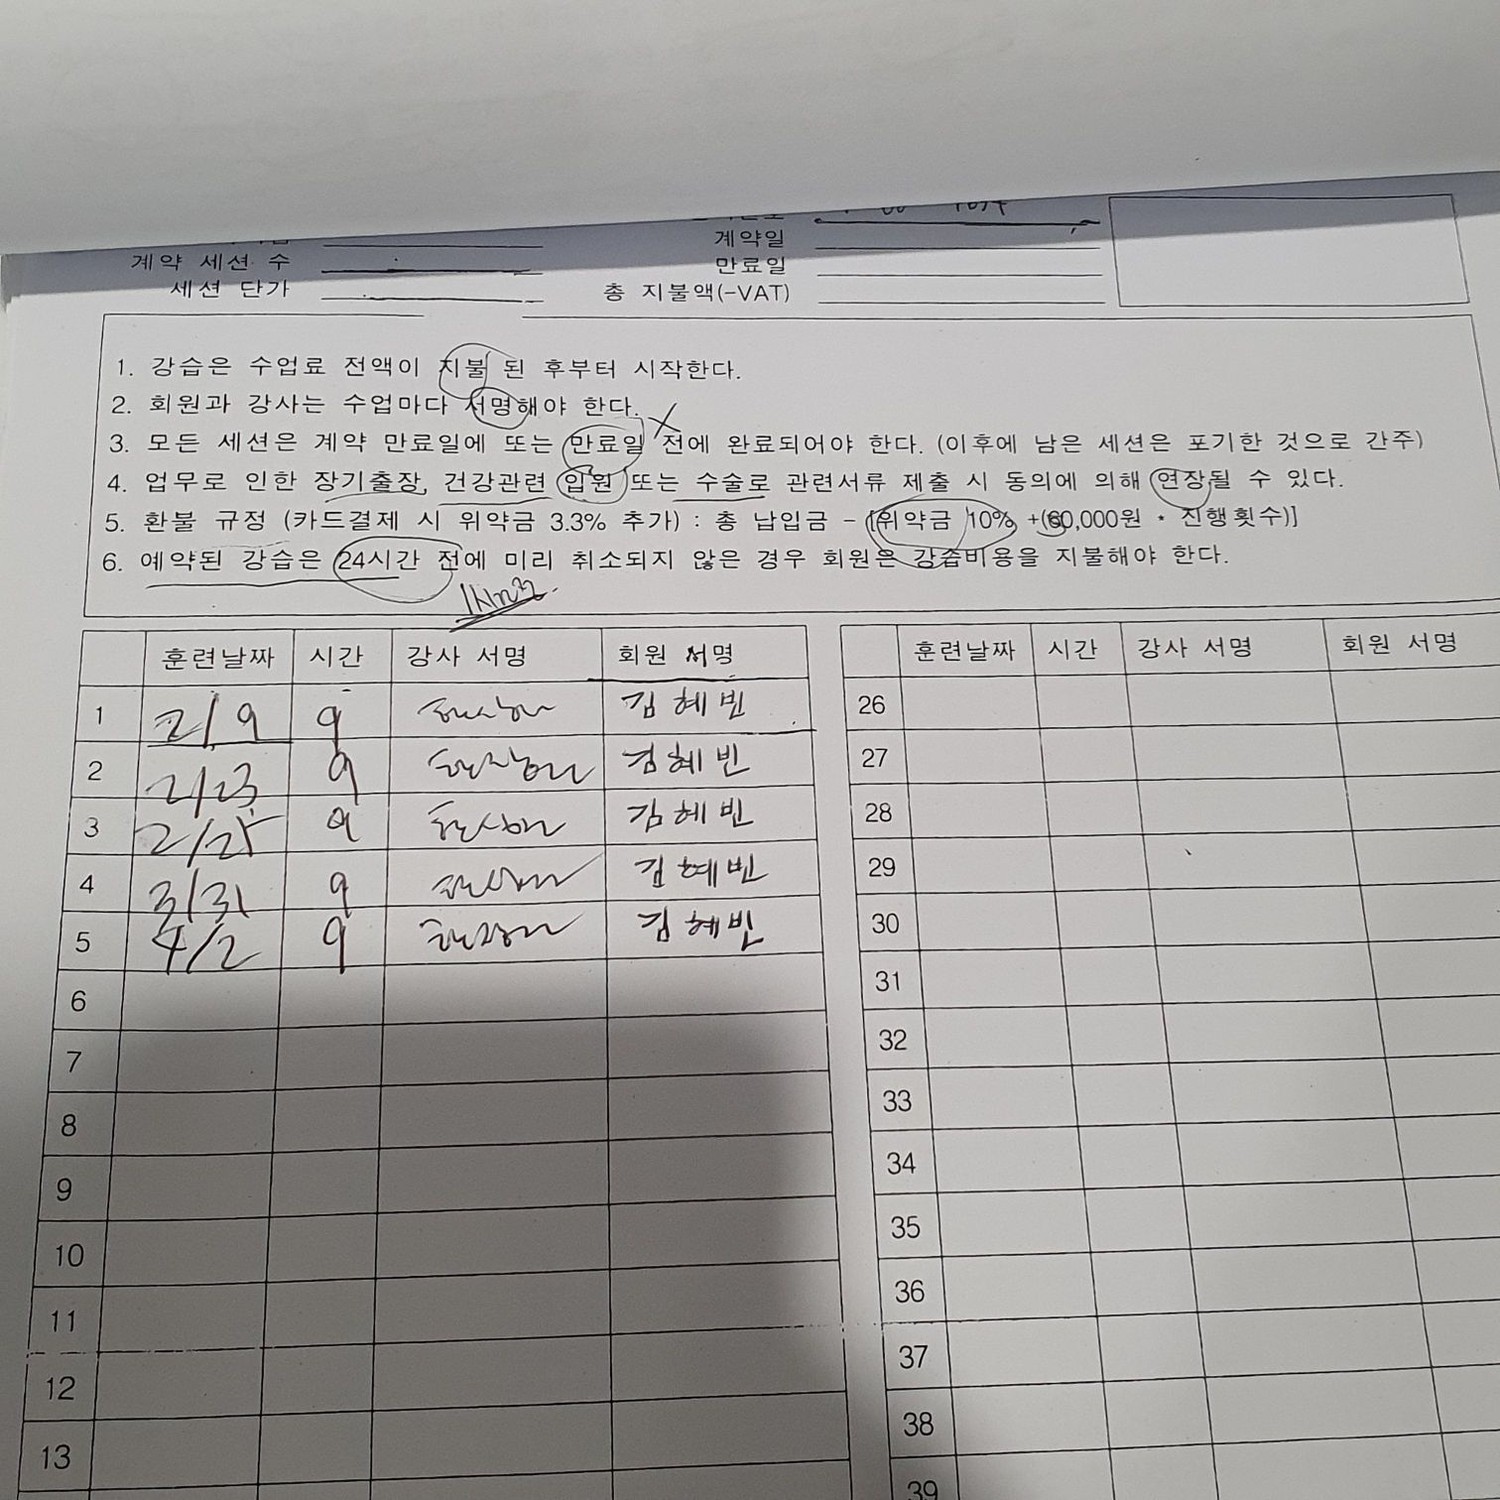 계약일
계약 세션 수
만료일
세션 단가
총 지불액(-VAT)
1. 강습은 수업료 전액이 지불 된 후부터 시작한다.
2. 회원과 강사는 수업마다 서명해야 한다.
3. 모든 세션은 계약 만료일에 또는 만료일 전에 완료되어야 한다. (이후에 남은 세션은 포기한 것으로 간주)
4. 업무로 인한 장기출장, 건강관련 입원 또는 수술로 관련서류 제출 시 동의에 의해 연장될 수 있다.
5. 환불 규정 (카드결제 시 위약금 3.3% 추가) : 총 납입금 - [위약금 10% +(60,000원 * 진행횟수)]
6. 예약된 강습은 24시간 전에 미리 취소되지 않은 경우 회원은 강습비용을 지불해야 한다.
훈련날짜 시간 강사 서명 회원 서명
1 2/9 9 김혜빈
2 2/23 9 김혜빈
3 2/25 9 김혜빈
4 3/31 9 김혜빈
5 4/2 9 김혜빈
6
7
8
9
10
11
12
13
훈련날짜 시간 강사 서명 회원 서명
26
27
28
29
30
31
32
33
34
35
36
37
38
39